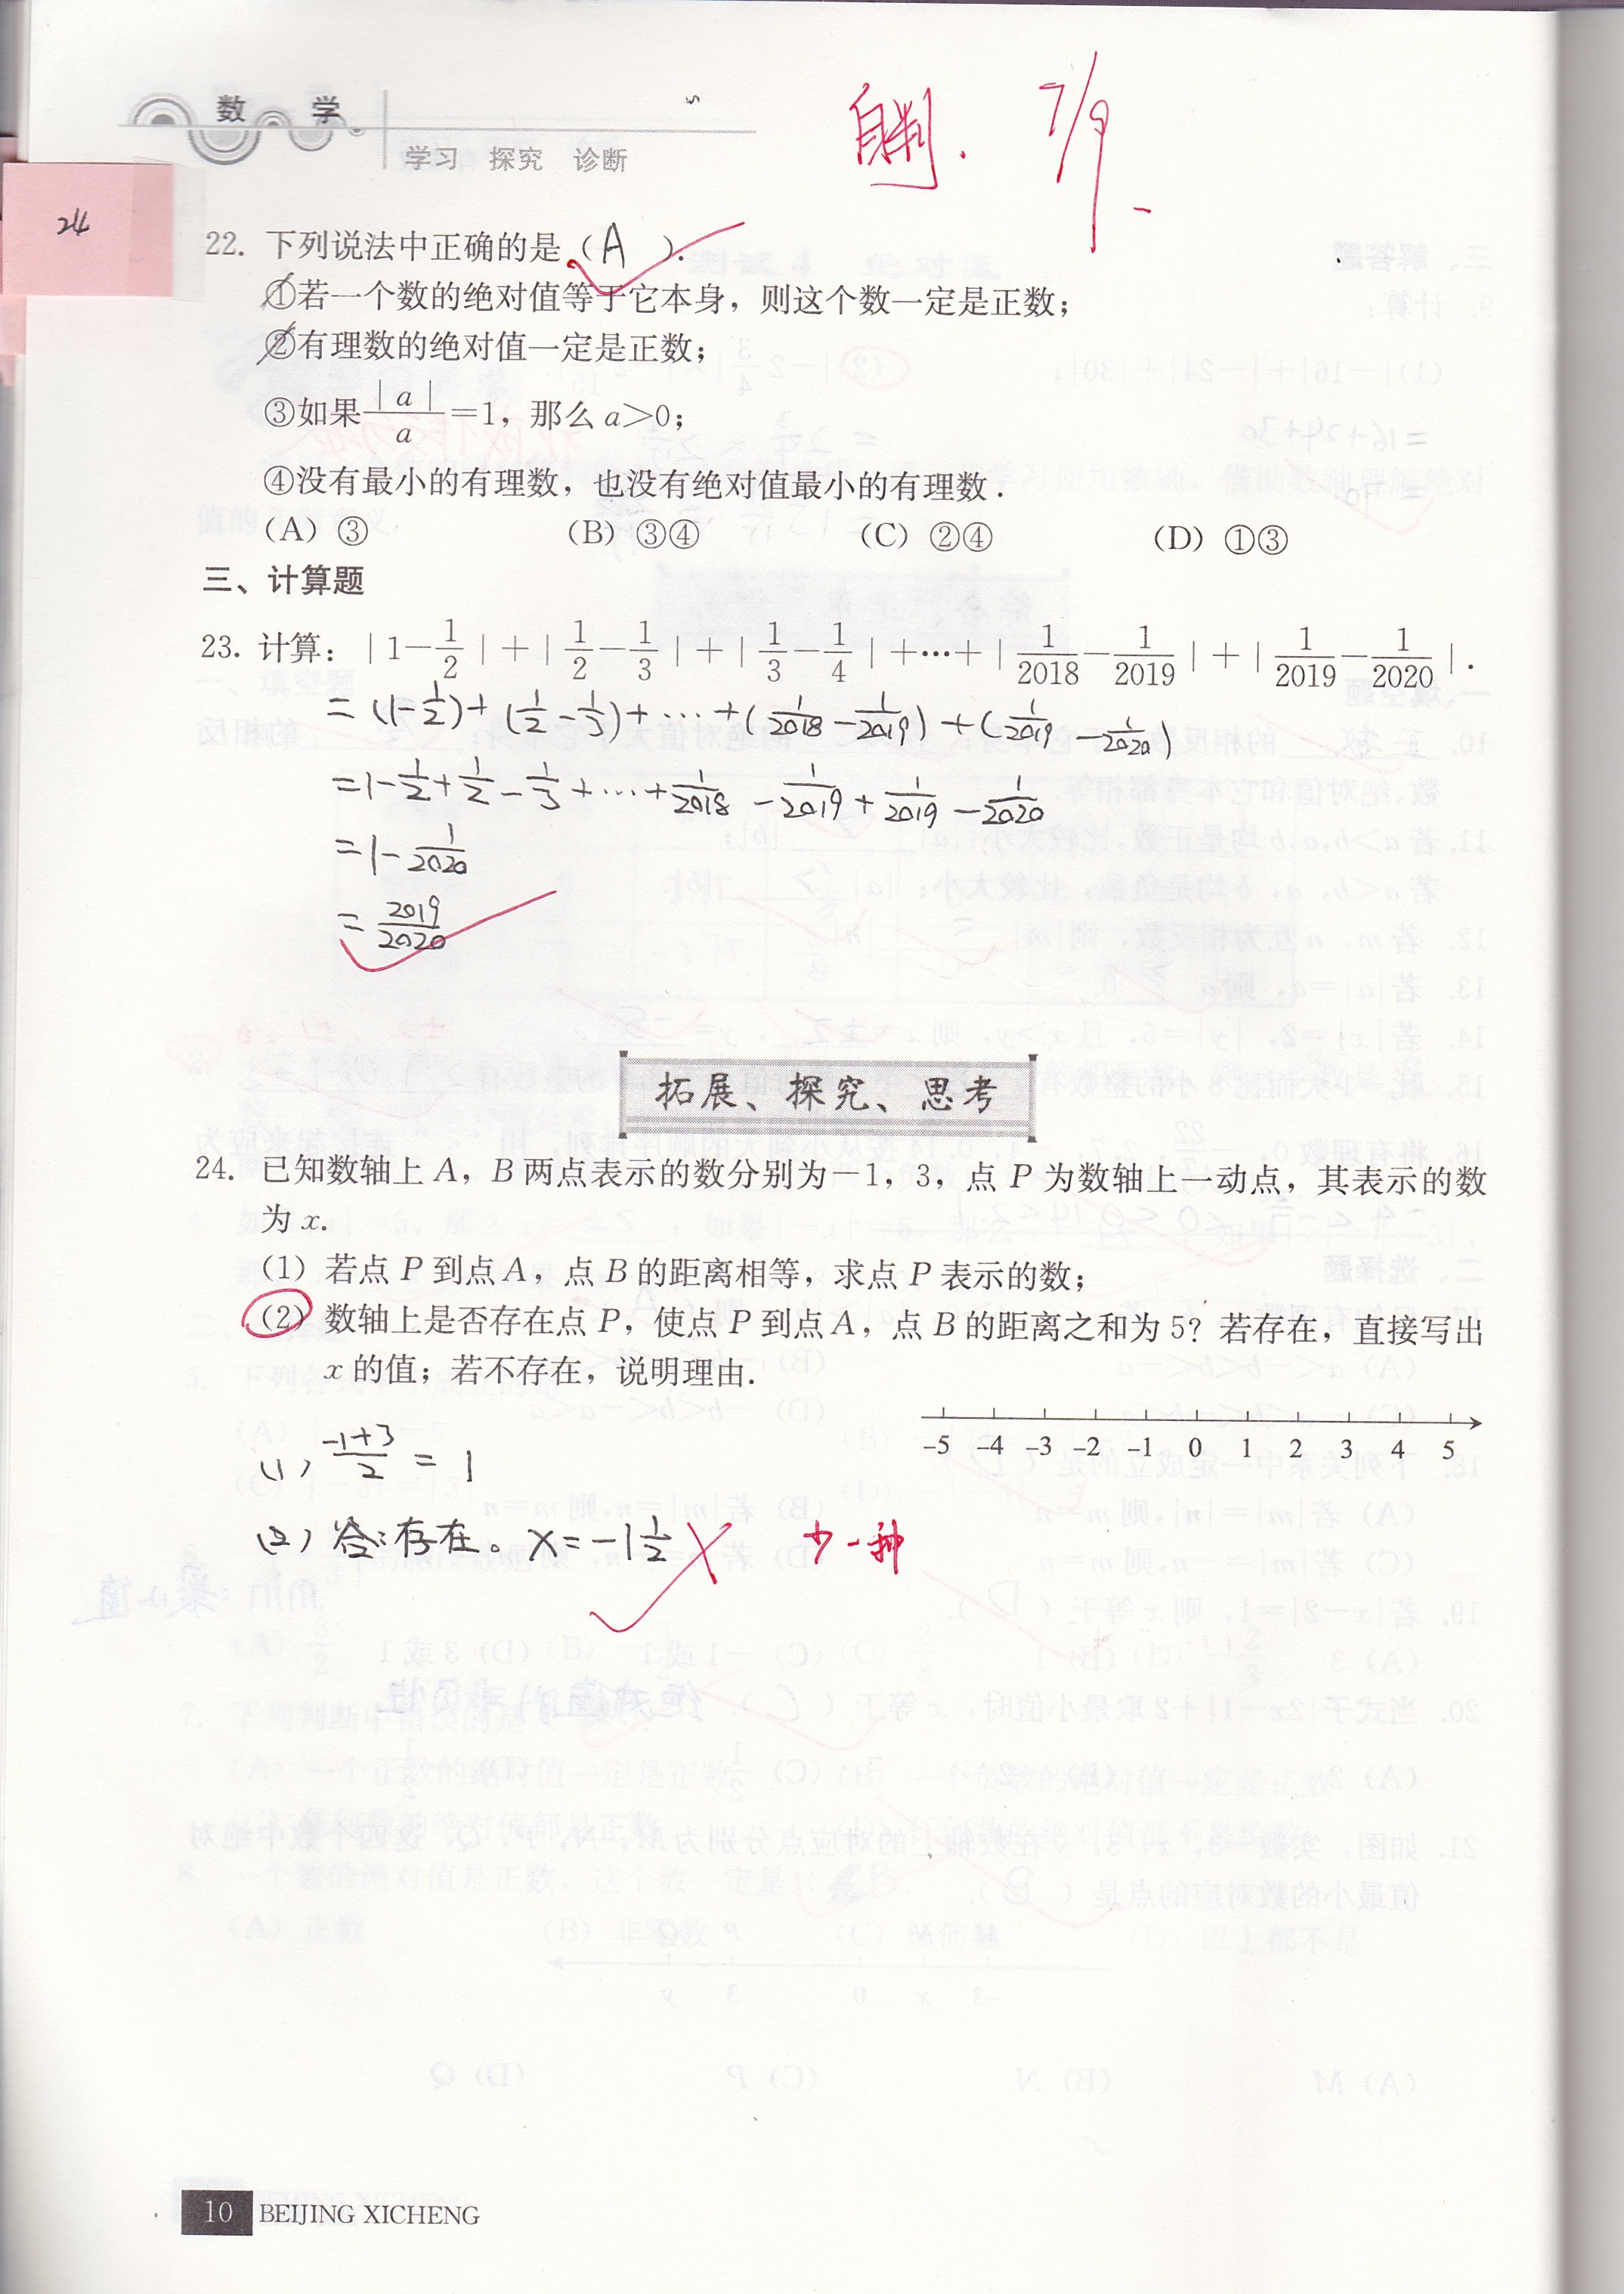 数 学
学习 探究 诊断
自判. 7/9
24
22. 下列说法中正确的是( A ).
①若一个数的绝对值等于它本身，则这个数一定是正数；
②有理数的绝对值一定是正数；
③如果|a|/a=1，那么 a>0；
④没有最小的有理数，也没有绝对值最小的有理数.
(A) ③ (B) ③④ (C) ②④ (D) ①③
三、计算题
23. 计算：|1-1/2|+|1/2-1/3|+|1/3-1/4|+…+|1/2018-1/2019|+|1/2019-1/2020|.
=(1-1/2)+(1/2-1/3)+…+(1/2018-1/2019)+(1/2019-1/2020)
=1-1/2+1/2-1/3+…+1/2018-1/2019+1/2019-1/2020
=1-1/2020
=2019/2020
拓展、探究、思考
24. 已知数轴上 A，B 两点表示的数分别为-1，3，点 P 为数轴上一动点，其表示的数
为 x.
(1) 若点 P 到点 A，点 B 的距离相等，求点 P 表示的数；
(2) 数轴上是否存在点 P，使点 P 到点 A，点 B 的距离之和为 5？若存在，直接写出
x 的值；若不存在，说明理由.
-5 -4 -3 -2 -1 0 1 2 3 4 5
(1) (-1+3)/2 = 1
(2) 答：存在。x=-1 1/2 少一种
10 BEIJING XICHENG